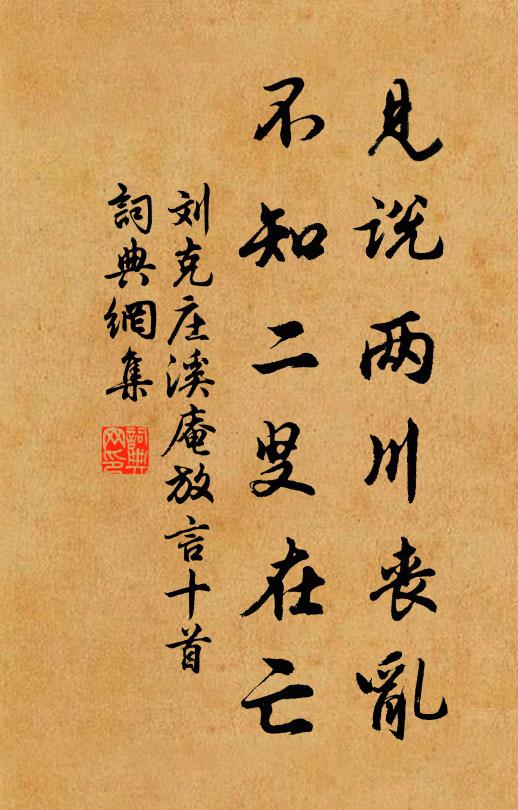 见说两川丧亂
不知二叟在亡
刘克庄溪庵放言十首
詞典網集
詞典网印